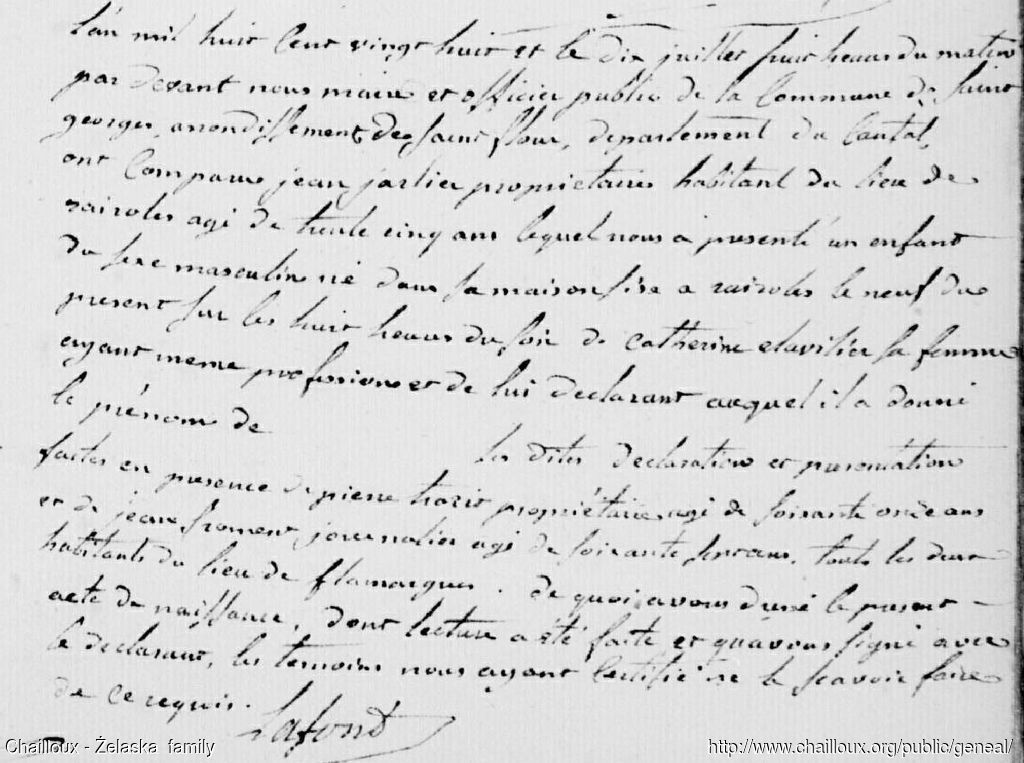 L'an mil huit Cent vingt huit et le Dix juillet huit heures du matin
par devant nous maire et officier public de la Commune de Saint
georges, arrondissement de Saint flour, departement du Cantal,
ont Comparu jean jarlier proprietaire habitant du lieu de
agé de trente cinq ans lequel nous a presenté un enfant
du sexe masculin né dans sa maison sise a le neuf du
present sur les huit heures du soir de Catherine sa femme
ayant meme profession et de lui declarant auquel il a donné
le prénom de
les dites declaration et presentation
faites en presence de pierre propriétaire agé de soixante onze ans
et de jean froment, journalier agé de soixante ans, touts les deux
habitants du lieu de flamargues. De quoi avons dressé le present
acte de naissance, Dont lecture a été faite et qu'avons signé avec
le declarant, les temoins nous ayant Certifié ne le scavoir faire
de ce requis.
Lafont
Chailloux - Żelaska family
http://www.chailloux.org/public/geneal/